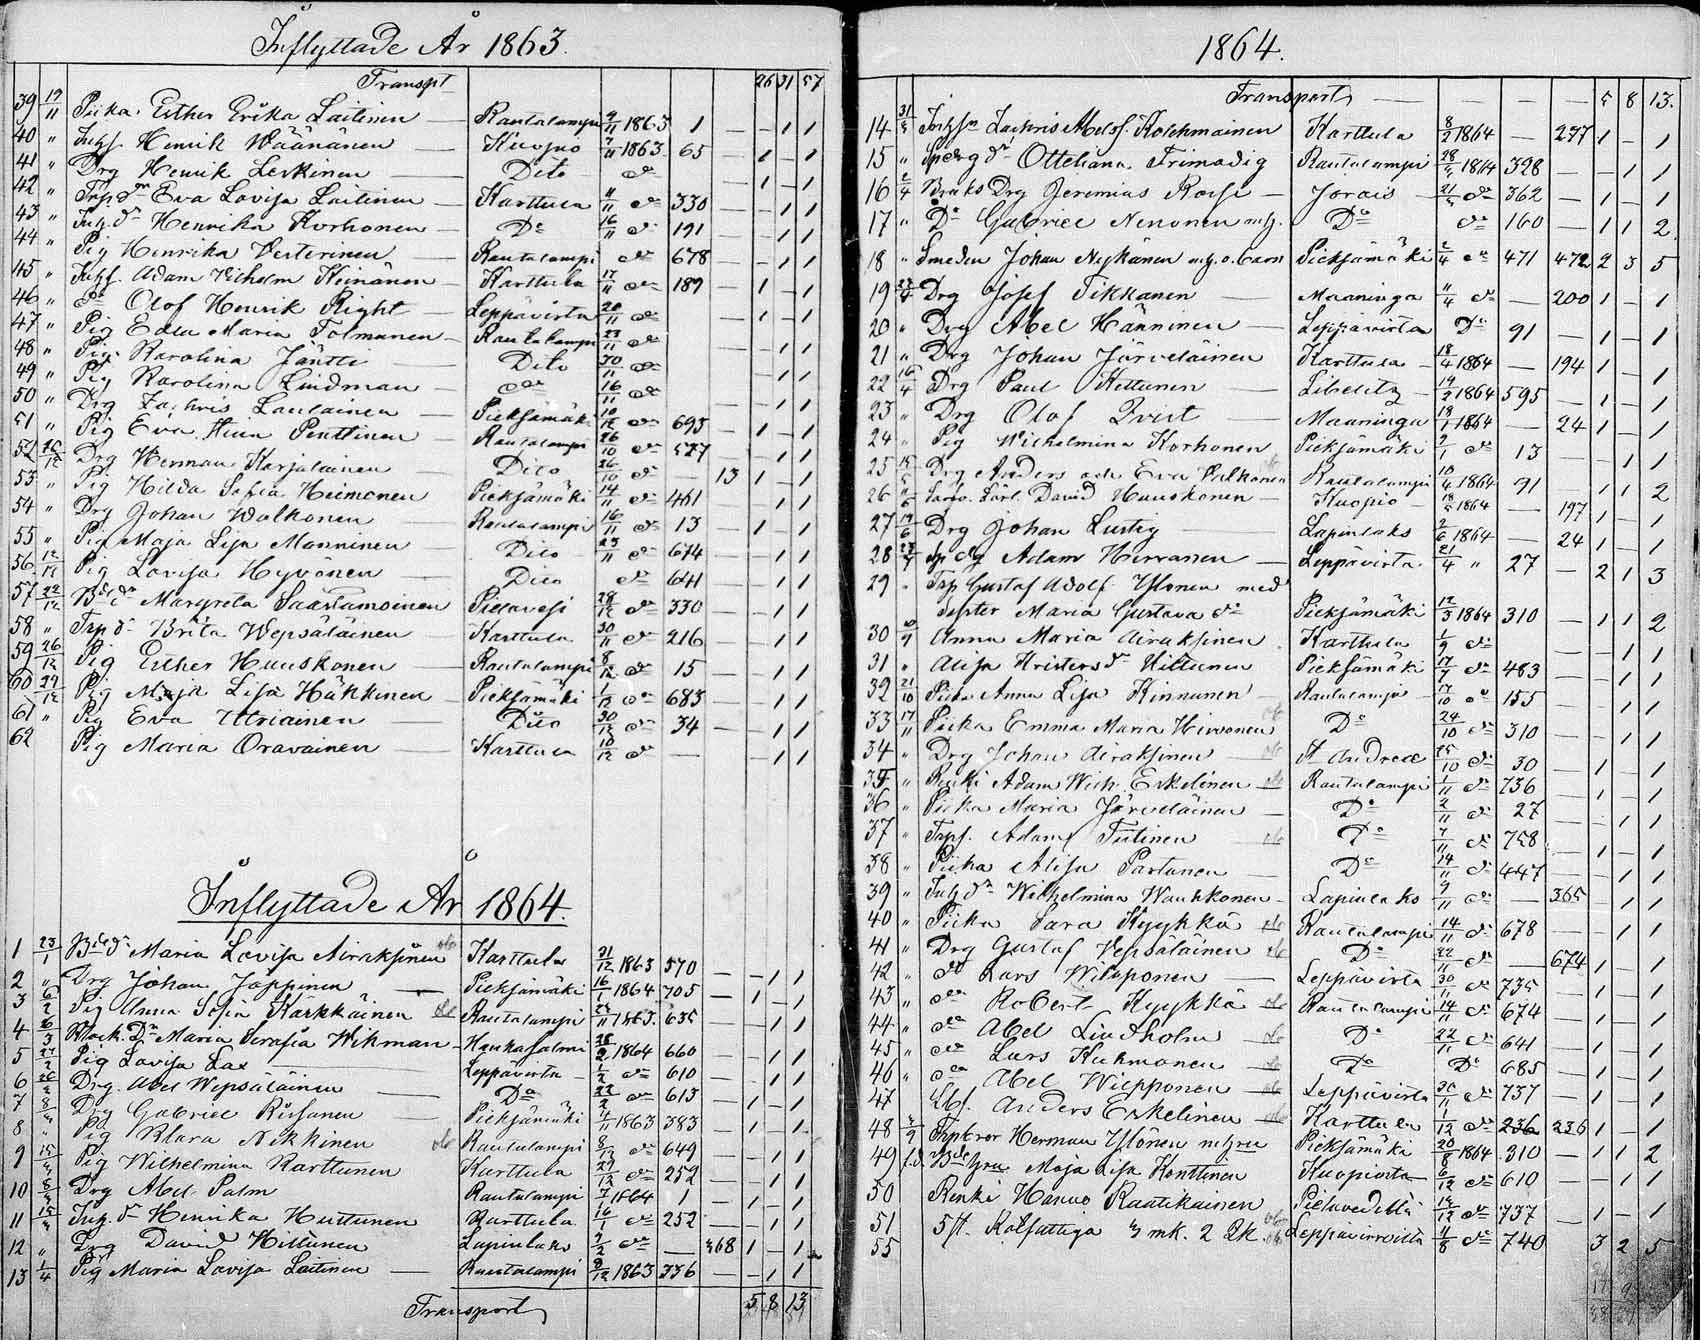 Inflyttade År 1863.
Transpt 26 31 57
39 19/11 Piika Esther Erika Laitinen — Rautalampi 9/11 1863 1 — — 1 1
40 " Inhs. Henrik Väänänen — Kuopio 7/11 1863 65 — 1 — 1
41 " Drg Henrik Leskinen — Dito do — 1 — 1
42 " Eva Lovisa Laitinen — Karttula 11/11 do 330 — — 1 1
43 " Henrika Korhonen — Do 16/11 do 191 — — 1 1
44 " Pig Henrika Vesterinen — Rautalampi do 678 — — 1 1
45 " Inhs. Adam Vilhelm Keinänen — Karttula 17/11 do 189 — 1 — 1
46 " do Olof Henrik Right — Leppävirta 20/11 do — 1 — 1
47 " Pig Edla Maria Tolmunen — Rautalampi 23/11 do — — 1 1
48 " Pig Karolina Jäntti — Dito 30/11 do — — 1 1
49 " Pig Karolina Lindman — do 16/11 do — — 1 1
50 " Drg Zachris Laulainen — Pieksämäki 10/12 do 693 — 1 — 1
51 " Pig Eva Stina Penttinen — Rautalampi 26/10 do 577 — — 1 1
52 Drg Herman Karjalainen — Dito 26/10 do — 13 1 — 1
53 " Pig Hilda Sofia Heimonen Pieksämäki 14/11 do 461 — — 1 1
54 " Drg Johan Walkonen Rautalampi 16/11 do 13 — 1 — 1
55 " Pig Maja Lisa Manninen — Dito 23/11 do 674 — — 1 1
56 12/12 Pig Lovisa Hyvönen — Dito do 641 — — 1 1
57 22/12 Margreta Saastamoinen Pielavesi 28/12 do 330 — — 1 1
58 " Brita Wepsäläinen Karttula 30/11 do 216 — — 1 1
59 26/12 Pig Esther Huuskonen — Rautalampi 8/12 do 15 — — 1 1
60 29/12 Pig Maja Lisa Häkkinen — Pieksämäki 1/12 do 683 — — 1 1
61 " Pig Eva Utriainen — Dito 30/12 do 34 — — 1 1
62 Pig Maria Oravainen — Karttula 10/12 do — — 1 1
Inflyttade År 1864.
1 23/1 Maria Lovisa Airaksinen Karttula 31/12 1863 570 — — 1 1
2 " Drg Johan Jappinen — Pieksämäki 16/1 1864 705 — 1 — 1
3 6/2 Pig Anna Sofia Kärkkäinen Rautalampi 1863 635 — — 1 1
4 6/3 Maria Serafia Wikman — Hankasalmi 28/2 1864 660 — — 1 1
5 Pig Lovisa Lax — Leppävirta 1/2 do 610 — — 1 1
6 Drg. Abel Wepsäläinen — Do 22/2 do 613 — 1 — 1
7 Drg Gabriel Rissanen — Pieksämäki 4/11 1863 383 — 1 — 1
8 " Pig Klara Nikkinen Rautalampi 8/12 do 649 — — 1 1
9 Pig Wilhelmina Karttunen Karttula 29/12 do 252 — — 1 1
10 Drg Abel Palm Rautalampi 7/1 1864 1 — 1 — 1
11 Henrika Huttunen Karttula 16/1 do 252 — — 1 1
12 " Drg David Hiltunen Lapinlaks 9/2 do — 368 1 — 1
13 1/4 Pig Maria Lovisa Laitinen — Rautalampi 9/12 1863 336 — — 1 1
Transport 5 8 13
1864.
Transport — — — — 5 8 13.
14 31/3 Zachris Abelss. Kolehmainen Karttula 8/2 1864 — 277 1 — 1
15 " Otteliana Frimodig Rautalampi 1864 328 — — 1 1
16 2/4 Bruks Drg Jeremias Korsi — Jorois do 362 — 1 — 1
17 " Do Gabriel Nenonen Do do 160 — 1 1 2
18 " Smeden Johan Nykänen m. h. o. barn Pieksämäki 2/4 do 471 472 2 3 5
19 Drg Josef Tikkanen — Maaninga 11/4 do — 200 1 — 1
20 " Drg Abel Hänninen — Leppävirta Do 91 — 1 — 1
21 " Drg Johan Järveläinen Karttula — 18/4 1864 — 194 1 — 1
22 16/4 Drg Paul Kettunen — Libelitz — 19/2 1864 595 — 1 — 1
23 " Drg Olof Qvist — Maaninga 18/1 1864 — 24 1 — 1
24 " Pig Wilhelmina Korhonen Pieksämäki 9/1 do 13 — — 1 1
25 Drg Anders och Eva Pulkonen Rautalampi 10/4 1864 91 — 1 1 2
26 " David Huuskonen — Kuopio 1864 — 197 1 — 1
27 Drg Johan Lustig Lapinlaks 2/6 1864 — 24 1 — 1
28 Adam Hirvonen — Leppävirta 21/4 " 27 — 2 1 3
29 " Gustaf Adolf Ylönen med
syster Maria Gustava do Pieksämäki 12/3 1864 310 — 1 1 2
30 Anna Maria Airaksinen Karttula 1/9 do — — 1 1
31 " Alisa Kristersdr Hiltunen Pieksämäki do 483 — — 1 1
32 21/10 Piika Anna Lisa Kinnunen — Rautalampi 17/10 do 155 — — 1 1
33 17/11 Piika Emma Maria Hirvonen Do 24/10 do 310 — — 1 1
34 " Drg Johan Airaksinen — St Andreæ 25/10 do 30 — 1 — 1
35 " Renki Adam Wilh. Eskelinen Rautalampi 1/11 do 736 — 1 — 1
36 " Piika Maria Järveläinen Do 2/11 do 27 — — 1 1
37 " Adam Tiitinen Do 7/11 do 758 — 1 — 1
38 " Piika Alisa Partanen — Do 14/11 do 447 — — 1 1
39 " Wilhelmina Wauhkonen — Lapinlaks 9/11 do — 365 — 1 1
40 " Piika Sara Kyykkä Rautalampi 14/11 do 678 — — 1 1
41 " Drg Gustaf Vepsäläinen Do 22/11 do — 674 1 — 1
42 " do Lars Wilpponen — Leppävirta 30/11 do 735 — 1 — 1
43 " do Robert Kyykkä Rautalampi 14/11 do 674 — 1 — 1
44 " do Abel Lindholm Do 22/11 do 641 — 1 — 1
45 " do Lars Kukmonen Do Do 685 — 1 — 1
46 " do Abel Wilpponen — Leppävirta 30/11 do 737 — 1 — 1
47 Anders Eskelinen Karttula 1/12 do 236 236 1 — 1
48 Herman Ylönen m hru Pieksämäki 20/8 1864 310 — 1 1 2
49 Maja Lisa Konttinen Kuopiosta 6/12 do 610 — — 1 1
50 Renki Hannu Rautikainen Pielavedeltä do 737 — 1 — 1
51 5 st. Rotfattiga 3 mk. 2 Qk. Leppävirroilta 1/8 do 740 3 2 5
55